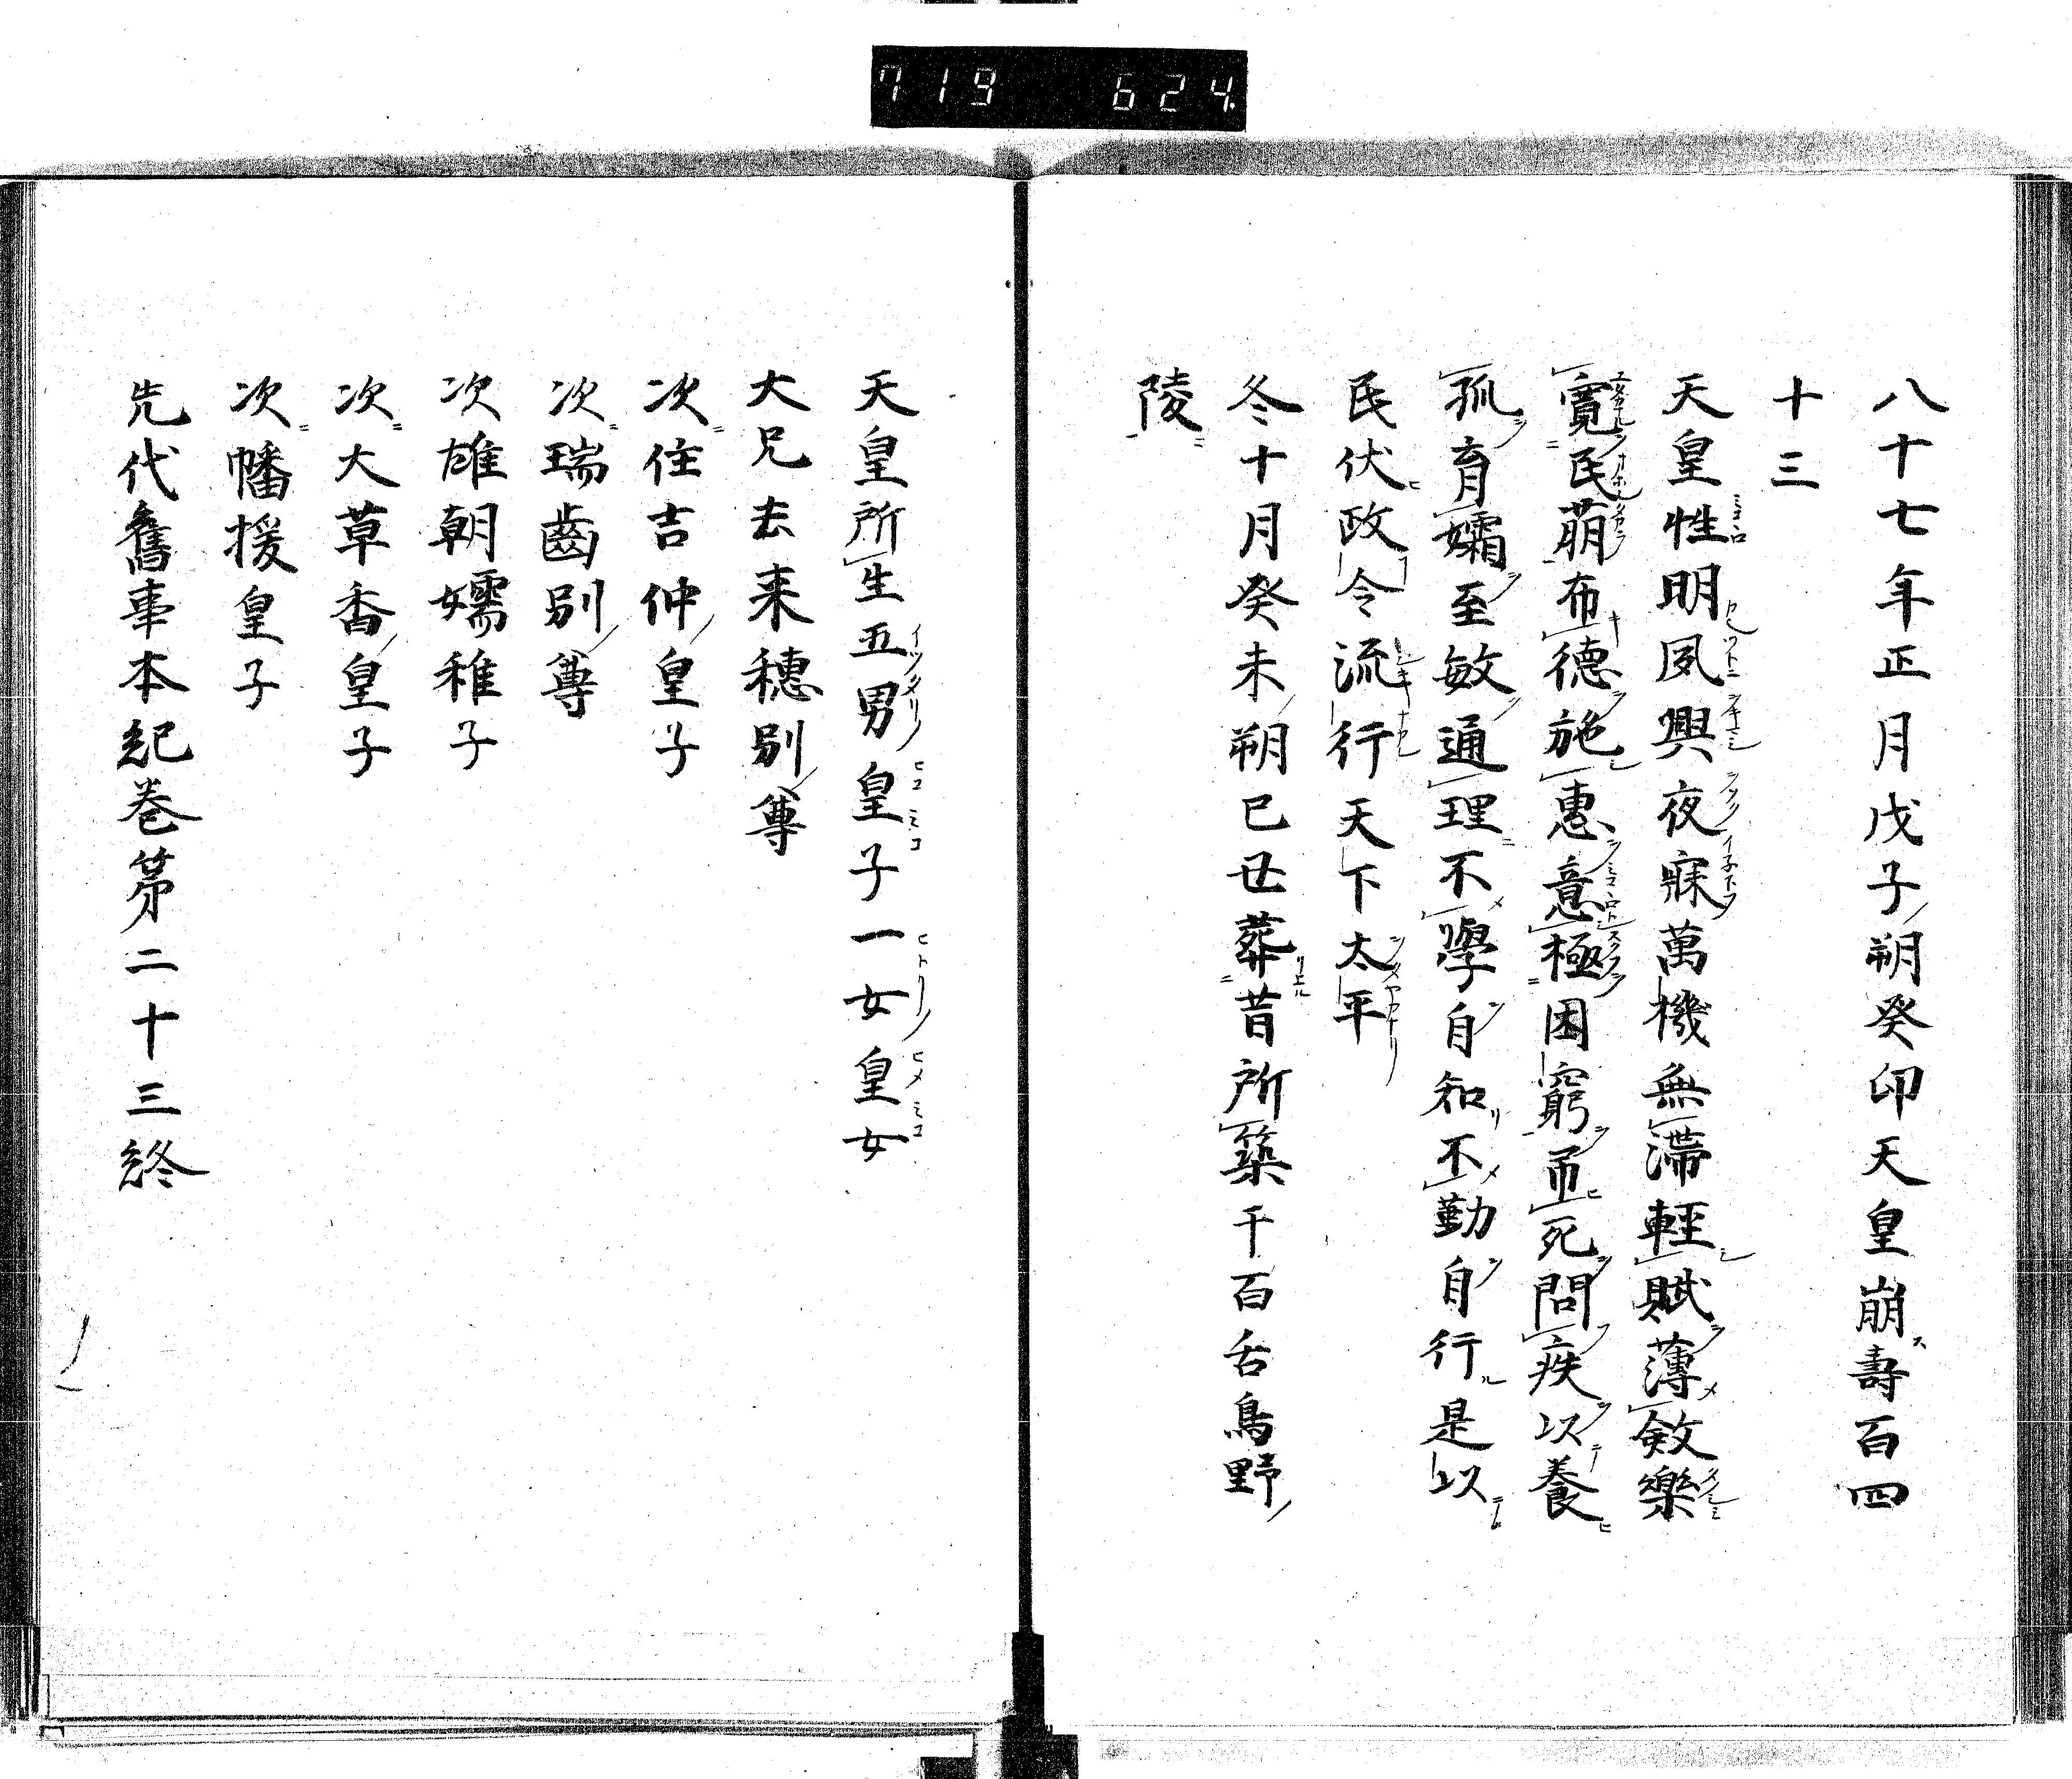 719 624.
八十七年正月戊子朔癸卯天皇崩壽百四
十三
天皇性明夙興夜寐萬機無滞輕賦薄斂樂
寛民萠布德施惠意極困窮弔死問疾以養
孤育孀至敏通理不學自知不勤自行是以
民伏政令流行天下太平
冬十月癸未朔己丑葬昔所築千百舌鳥野
陵
天皇所生五男皇子一女皇女
大兄去来穗別尊
次住吉仲皇子
次瑞齒別尊
次雄朝嬬稚子
次大草香皇子
次幡援皇子
先代舊事本紀巻第二十三終